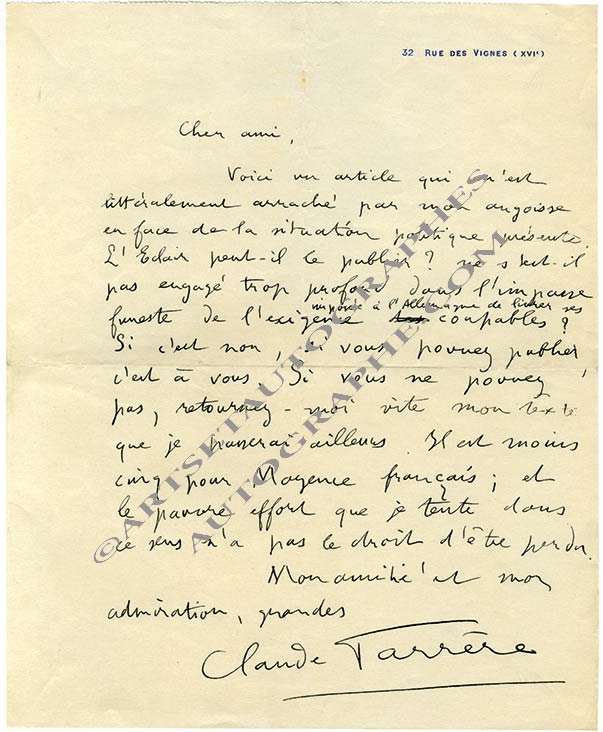 32 RUE DES VIGNES (XVIe)
Cher ami,
Voici un article qui m'est
littéralement arraché par mon angoisse
en face de la situation politique présente.
L'Eclair peut-il le publier ? ne s'est-il
pas engagé trop profond dans l'impasse
imposé à l'Allemagne de livrer ses
funeste de l'exigence coupables ?
Si c'est non, si vous pouvez publier
c'est à vous. Si vous ne pouvez
pas, retournez-moi vite mon texte
que je passerai ailleurs. Il est moins
cinq pour Mayence français ; et
le pauvre effort que je tente dans
ce sens n'a pas le droit d'être perdu.
Mon amitié et mon
admiration, grandes
Claude Farrère
©ARTSETAUTOGRAPHES
AUTOGRAPHE.COM